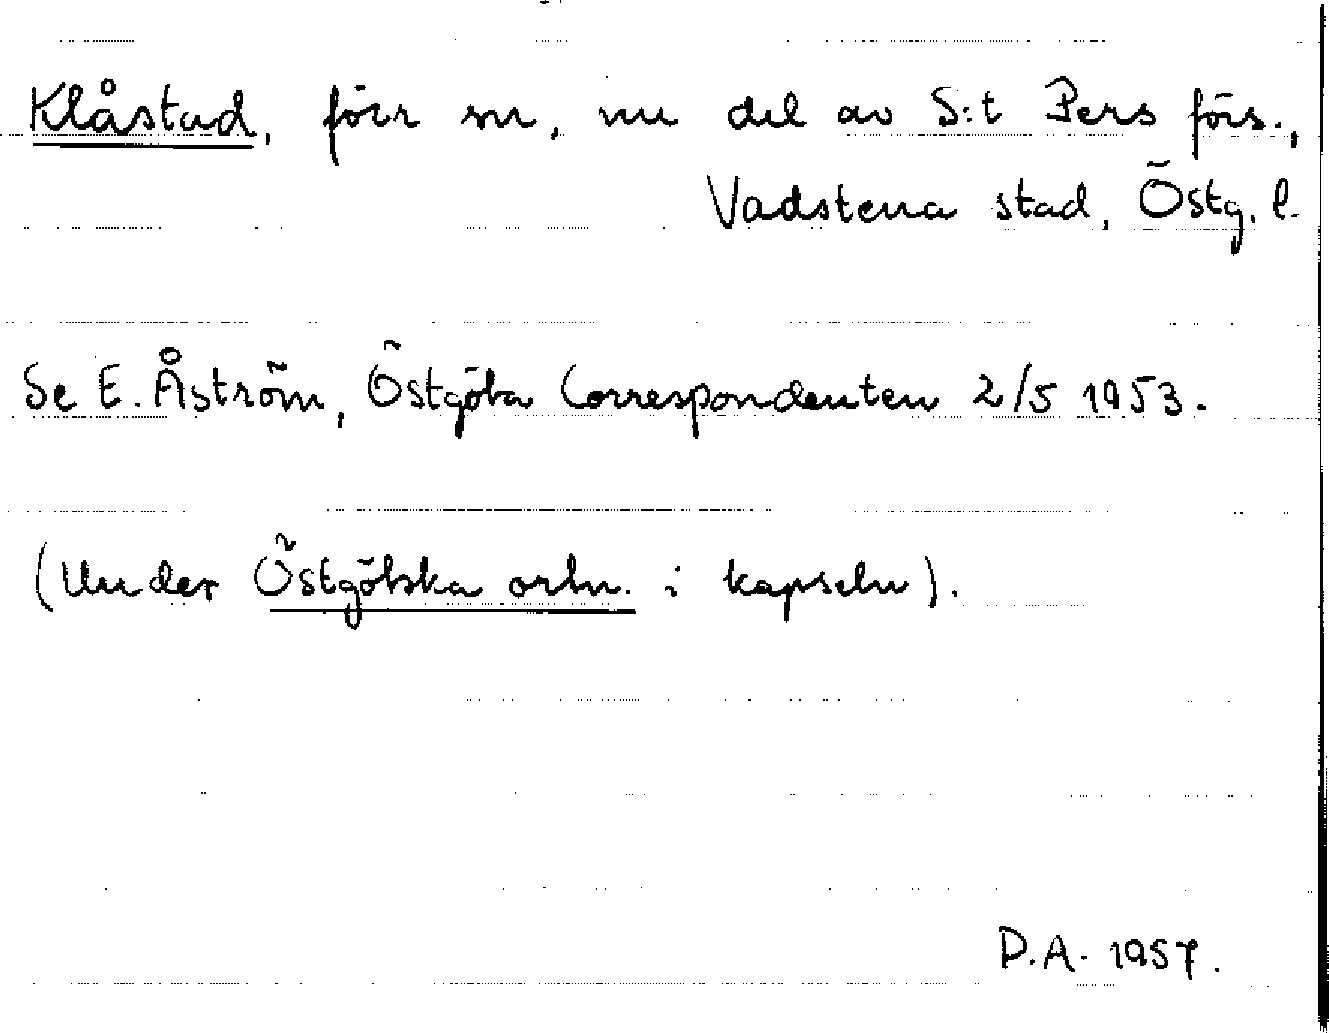 Klåstad, förr sn, nu del av S:t Pers förs.,
Vadstena stad, Östg. l.
Se E. Åström, Östgöta Correspondenten 2/5 1953.
(Under Östgötska ortn. i kapseln).
D.A. 1957.